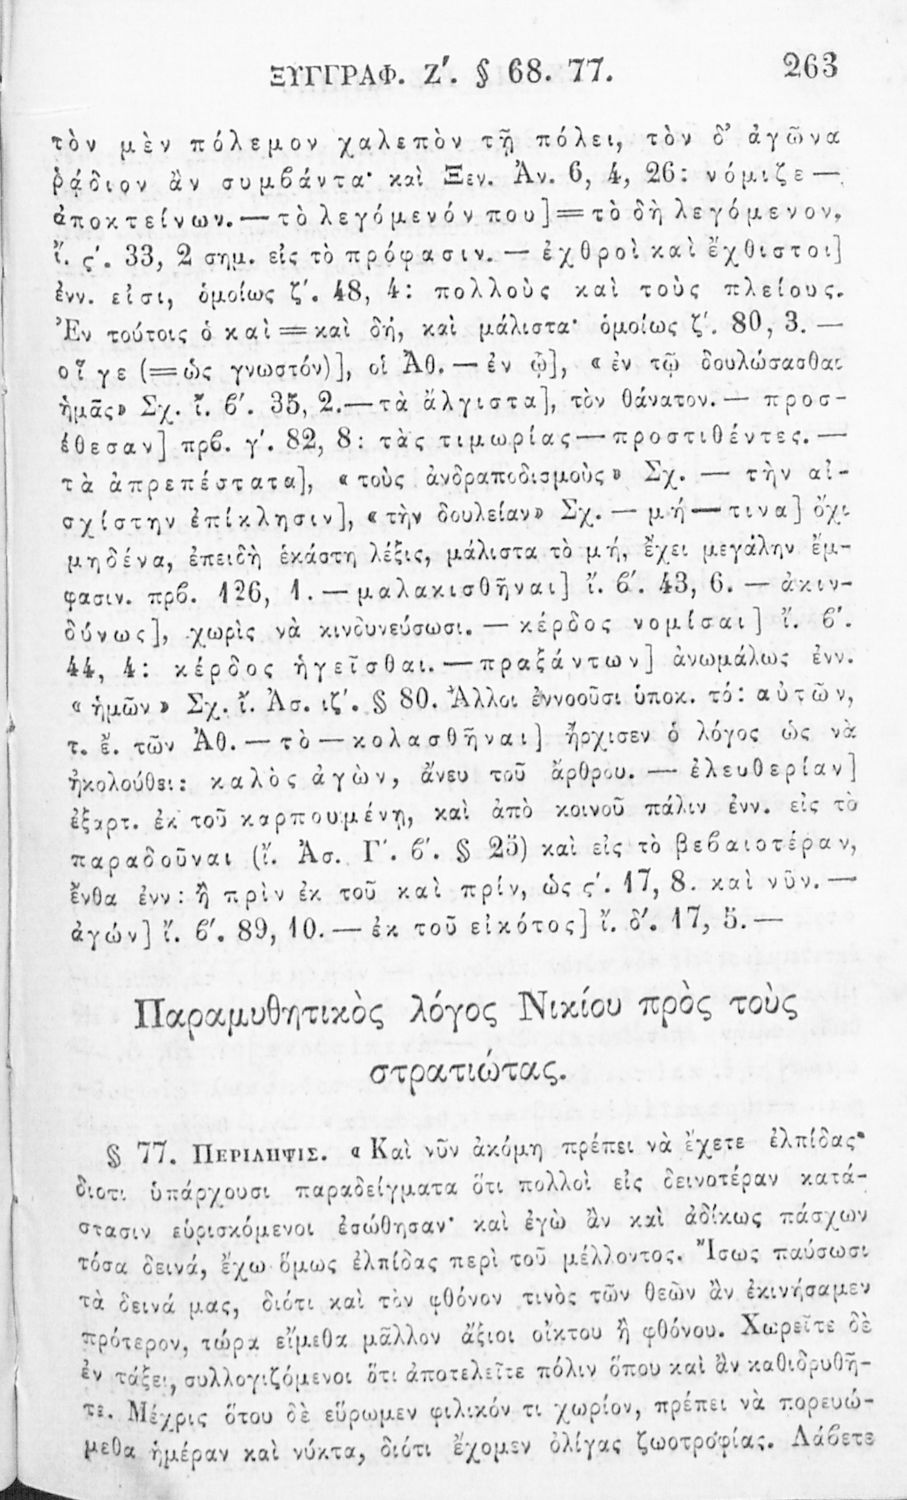 ΞΥΓΓΡΑΦ. Ζ′. § 68. 77. 263
τὸν μὲν πόλεμον χαλεπὸν τῇ πόλει, τὸν δ’ ἀγῶνα
ῥᾴδιον ἂν συμβάντα· καὶ Ξεν. Ἀν. 6, 4, 26: νόμιζε —
ἀποκτείνων. — τὸ λεγόμενόν που] = τὸ δὴ λεγόμενον,
ἴ. ς′. 33, 2 σημ. εἰς τὸ πρόφασιν. — ἐχθροὶ καὶ ἔχθιστοι]
ἐνν. εἰσι, ὁμοίως ζ′. 48, 4: πολλοὺς καὶ τοὺς πλείους.
Ἐν τούτοις ὁ καὶ = καὶ δή, καὶ μάλιστα· ὁμοίως ζ′. 80, 3. —
οἵ γε (= ὡς γνωστόν)], οἱ Ἀθ. — ἐν ᾧ], «ἐν τῷ δουλώσασθαι
ἡμᾶς» Σχ. ἴ. β′. 35, 2. — τὰ ἄλγιστα], τὸν θάνατον. — προσ-
έθεσαν] πρβ. γ′. 82, 8: τὰς τιμωρίας — προστιθέντες. —
τὰ ἀπρεπέστατα], «τοὺς ἀνδραποδισμοὺς» Σχ. — τὴν αἰ-
σχίστην ἐπίκλησιν], «τὴν δουλείαν» Σχ. — μή — τινα] ὄχι
μηδένα, ἐπειδὴ ἑκάστη λέξις, μάλιστα τὸ μή, ἔχει μεγάλην ἔμ-
φασιν. πρβ. 126, 1. — μαλακισθῆναι] ἴ. β′. 43, 6. — ἀκιν-
δύνως], χωρὶς νὰ κινδυνεύσωσι. — κέρδος νομίσαι] ἴ. β′.
44, 4: κέρδος ἡγεῖσθαι. — πραξάντων] ἀνωμάλως ἐνν.
«ἡμῶν» Σχ. ἴ. Ἀσ. ιζ′. § 80. Ἄλλοι ἐννοοῦσι ὑποκ. τό: αὐτῶν,
τ. ἔ. τῶν Ἀθ. — τὸ — κολασθῆναι] ἤρχισεν ὁ λόγος ὡς νὰ
ἠκολούθει: καλὸς ἀγὼν, ἄνευ τοῦ ἄρθρου. — ἐλευθερίαν]
ἐξαρτ. ἐκ τοῦ καρπουμένῃ, καὶ ἀπὸ κοινοῦ πάλιν ἐνν. εἰς τὸ
παραδοῦναι (ἴ. Ἀσ. Γ′. β′. § 25) καὶ εἰς τὸ βεβαιοτέραν,
ἔνθα ἐνν: ἢ πρὶν ἐκ τοῦ καὶ πρίν, ὡς ς′. 17, 8. καὶ νῦν. —
ἀγών] ἴ. β′. 89, 10. — ἐκ τοῦ εἰκότος] ἴ. δ′. 17, 5. —
Παραμυθητικὸς λόγος Νικίου πρὸς τοὺς
στρατιώτας.
§ 77. ΠΕΡΙΛΗΨΙΣ. «Καὶ νῦν ἀκόμη πρέπει νὰ ἔχετε ἐλπίδας·
διότι ὑπάρχουσι παραδείγματα ὅτι πολλοὶ εἰς δεινοτέραν κατά-
στασιν εὑρισκόμενοι ἐσώθησαν· καὶ ἐγὼ ἂν καὶ ἀδίκως πάσχων
τόσα δεινά, ἔχω ὅμως ἐλπίδας περὶ τοῦ μέλλοντος. Ἴσως παύσωσι
τὰ δεινά μας, διότι καὶ τὸν φθόνον τινὸς τῶν θεῶν ἂν ἐκινήσαμεν
πρότερον, τώρα εἴμεθα μᾶλλον ἄξιοι οἴκτου ἢ φθόνου. Χωρεῖτε δὲ
ἐν τάξει, συλλογιζόμενοι ὅτι ἀποτελεῖτε πόλιν ὅπου καὶ ἂν καθιδρυθῆ-
τε. Μέχρις ὅτου δὲ εὕρωμεν φιλικόν τι χωρίον, πρέπει νὰ πορευώ-
μεθα ἡμέραν καὶ νύκτα, διότι ἔχομεν ὀλίγας ζωοτροφίας. Λάβετε